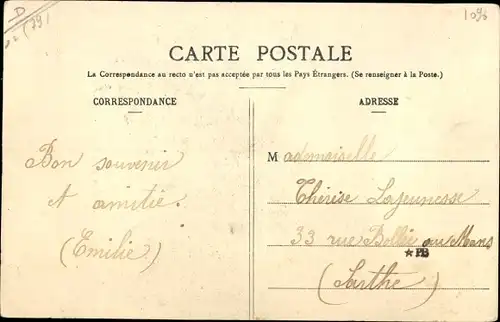 D
(29)
1096
CARTE POSTALE
La Correspondance au recto n'est pas acceptée par tous les Pays Étrangers. (Se renseigner à la Poste.)
CORRESPONDANCE
Bon souvenir
et amitié.
(Emilie)
ADRESSE
Mademoiselle
Thérèse Lajeunesse
33 rue Bollée au Mans
★PB
(Sarthe)